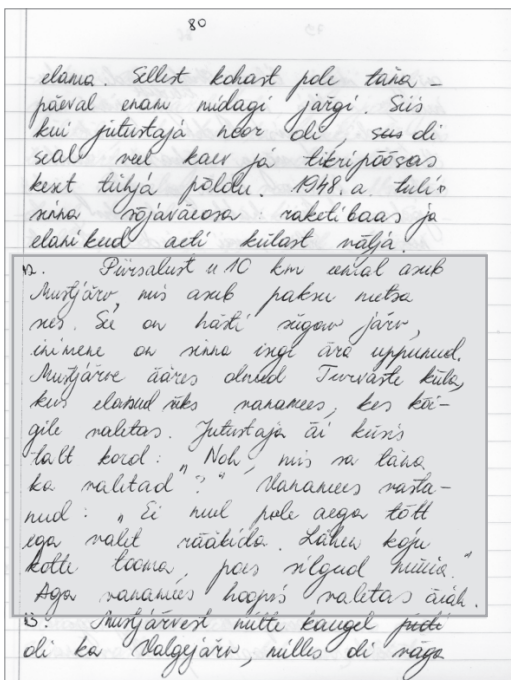 80
elama. Sellest kohast pole täna-
päeval enam midagi järgi. Siis
kui jutustaja noor oli, siis oli
seal veel kaev ja tikripõõsas
keset tühja põldu. 1948. a. tuli
sinna sõjaväeosa: raketibaas ja
elanikud aeti külast välja.
12. Piirsalust u 10 km eemal asub
Mustjärv, mis asub paksu metsa
sees. See on hästi sügav järv,
inimene on sinna isegi ära uppunud.
Mustjärve ääres olnud Turvaste küla,
kus elanud üks vanamees, kes kõi-
gile valetas. Jutustaja äi küsis
talt kord: „Noh, mis sa täna
ka valetad"?" Vanamees vasta-
nud: „Ei mul pole aega tõtt
ega valet rääkida. Lähen koju
kotte tooma, poes silgud müüia."
Aga vanamees hoopis valetas äiah.
13. Mustjärvest mitte kaugel
oli ka Valgejärv, milles oli väga